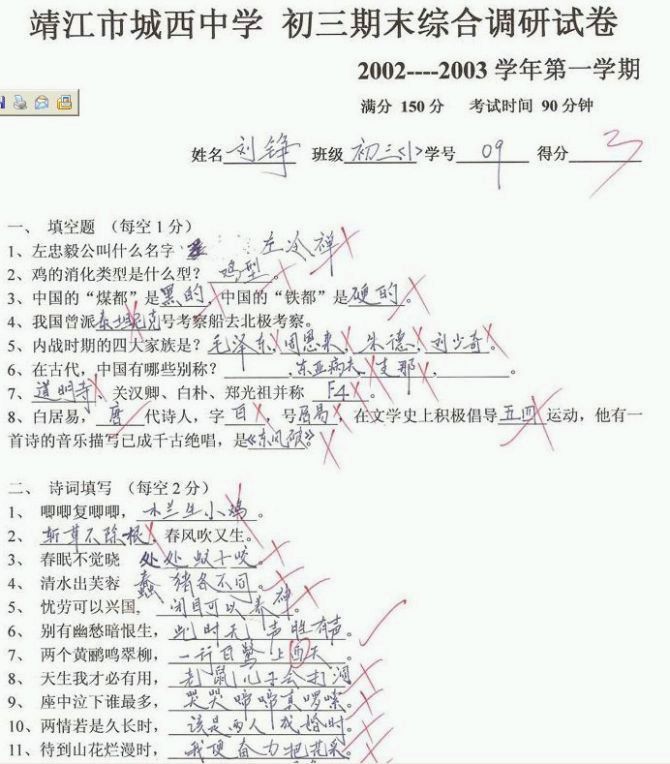 靖江市城西中学 初三期末综合调研试卷
2002----2003 学年第一学期
满分 150 分 考试时间 90 分钟
姓名 刘铮 班级 初三<1> 学号 09 得分 3
一、 填空题 （每空 1 分）
1、左忠毅公叫什么名字 左冷禅
2、鸡的消化类型是什么型？ 鸡型 。
3、中国的“煤都”是黑的，中国的“铁都”是硬的。
4、我国曾派泰坦尼克号考察船去北极考察。
5、内战时期的四大家族是？毛泽东、周恩来、朱德、刘少奇。
6、在古代，中国有哪些别称？ 、东亚病夫、支那、 。
7、道明寺、关汉卿、白朴、郑光祖并称 F4 。
8、白居易， 唐 代诗人，字 白 ，号居易，在文学史上积极倡导五四运动，他有一
首诗的音乐描写已成千古绝唱，是《东风破》。
二、 诗词填写 （每空 2 分）
1、 唧唧复唧唧， 木兰生小鸡 。
2、 斩草不除根，春风吹又生。
3、 春眠不觉晓 处处蚊子咬。
4、 清水出芙蓉 蠢猪各不同。
5、 忧劳可以兴国， 闭目可以养神
6、 别有幽愁暗恨生， 此时无声胜有声。
7、 两个黄鹂鸣翠柳， 一行白鹭上西天。
8、 天生我才必有用， 老鼠儿子会打洞
9、 座中泣下谁最多， 哭哭啼啼真啰嗦。
10、两情若是久长时， 该是两人成婚时。
11、待到山花烂漫时， 我便奋力把花采。